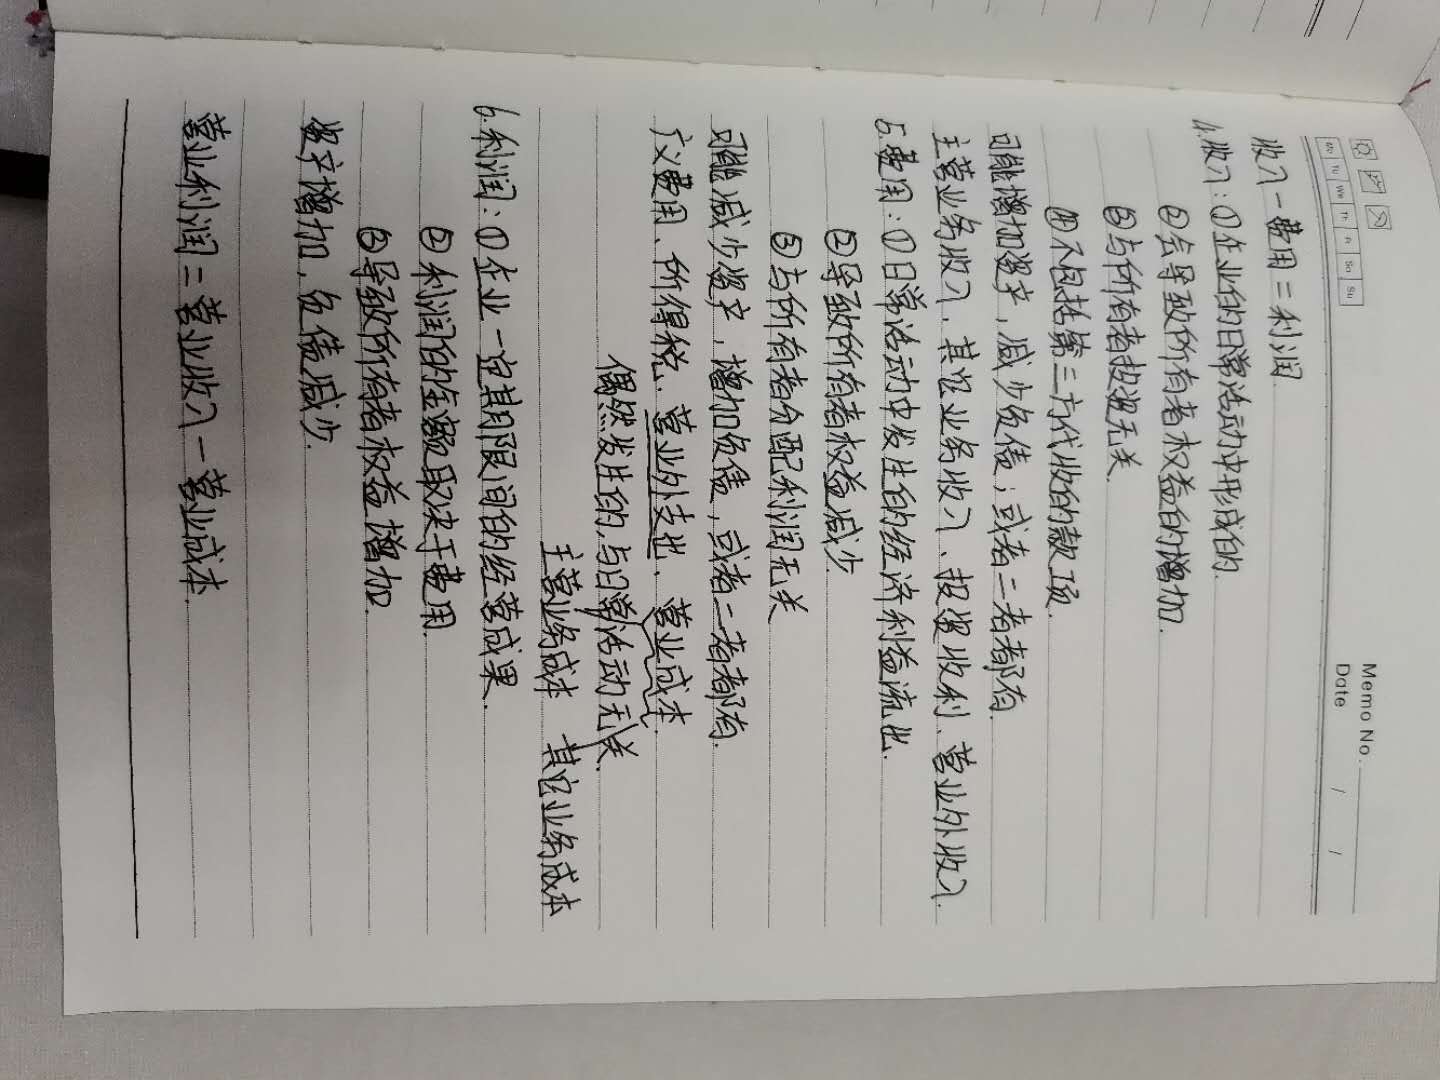 Memo No.
Mo Tu We Th Fr Sa Su
Date / /
收入－费用＝利润
4.收入：①企业的日常活动中形成的.
②会导致所有者权益的增加.
③与所有者投资无关
④不包括第三方代收的款项.
可能增加资产，减少负债；或者二者都有.
主营业务收入、其它业务收入、投资收利、营业外收入.
5.费用：①日常活动中发生的经济利益流出.
②导致所有者权益减少
③与所有者分配利润无关
可能减少资产，增加负债，或者二者都有.
广义费用、所得税、营业外支出、营业成本.
偶然发生的,与日常活动无关.
主营业务成本 其它业务成本
6.利润：①企业一定期限间的经营成果.
②利润的金额取决于费用.
③导致所有者权益增加.
资产增加，负债减少.
营业利润＝营业收入－营业成本.